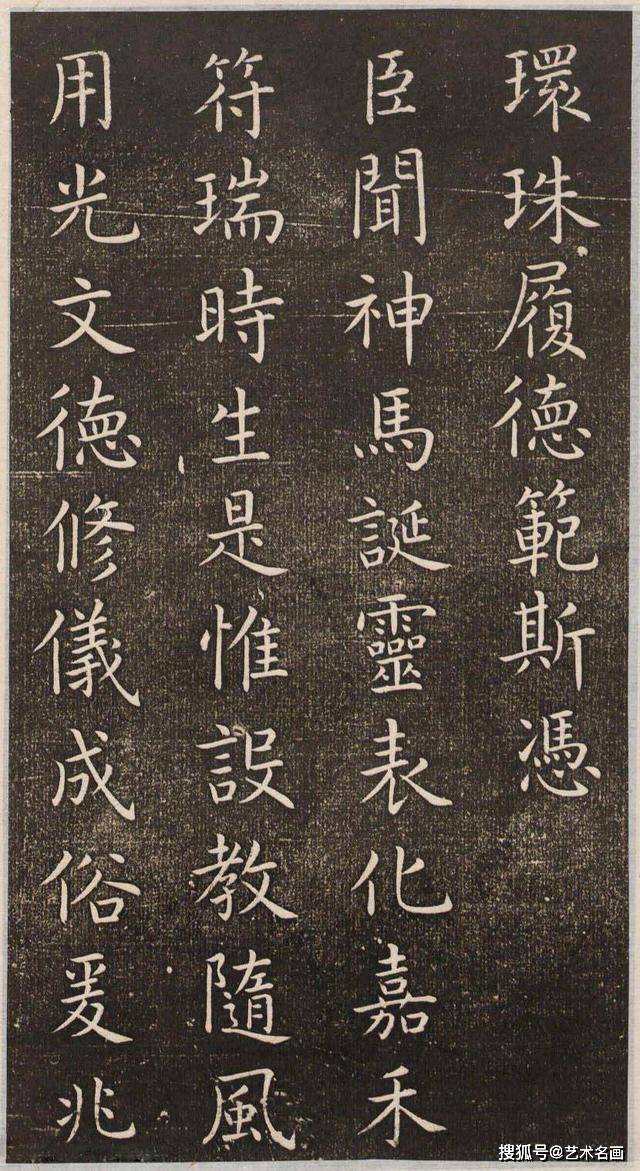 環珠履德範斯憑
臣聞神馬誕靈表化嘉禾
符瑞時生是惟設教隨風
用光文德修儀成俗爰兆
搜狐号@艺术名画